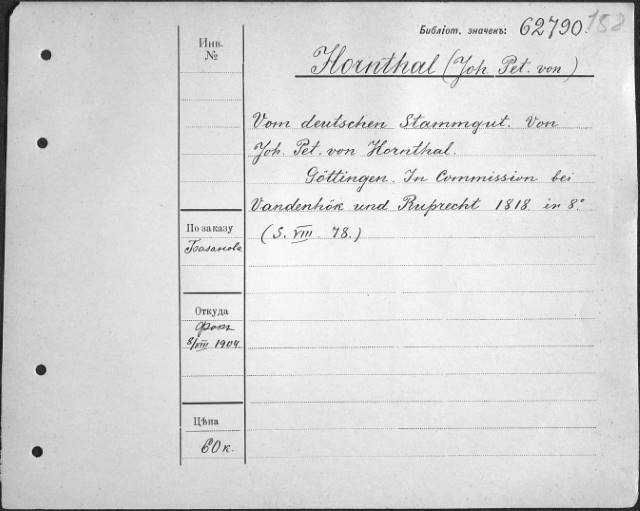 Библіот. значекъ: 62790. 158
Инв.
№
Hornthal (Joh. Pet. von)
Vom deutschen Stammgut. Von
Joh. Pet. von Hornthal.
Göttingen. In Commission bei
Vandenhök und Ruprecht 1818. in 8°
(S. VIII. 78.)
По заказу
Базанова
Откуда
Фокъ
8/VIII 1904
Цѣна
60 к.